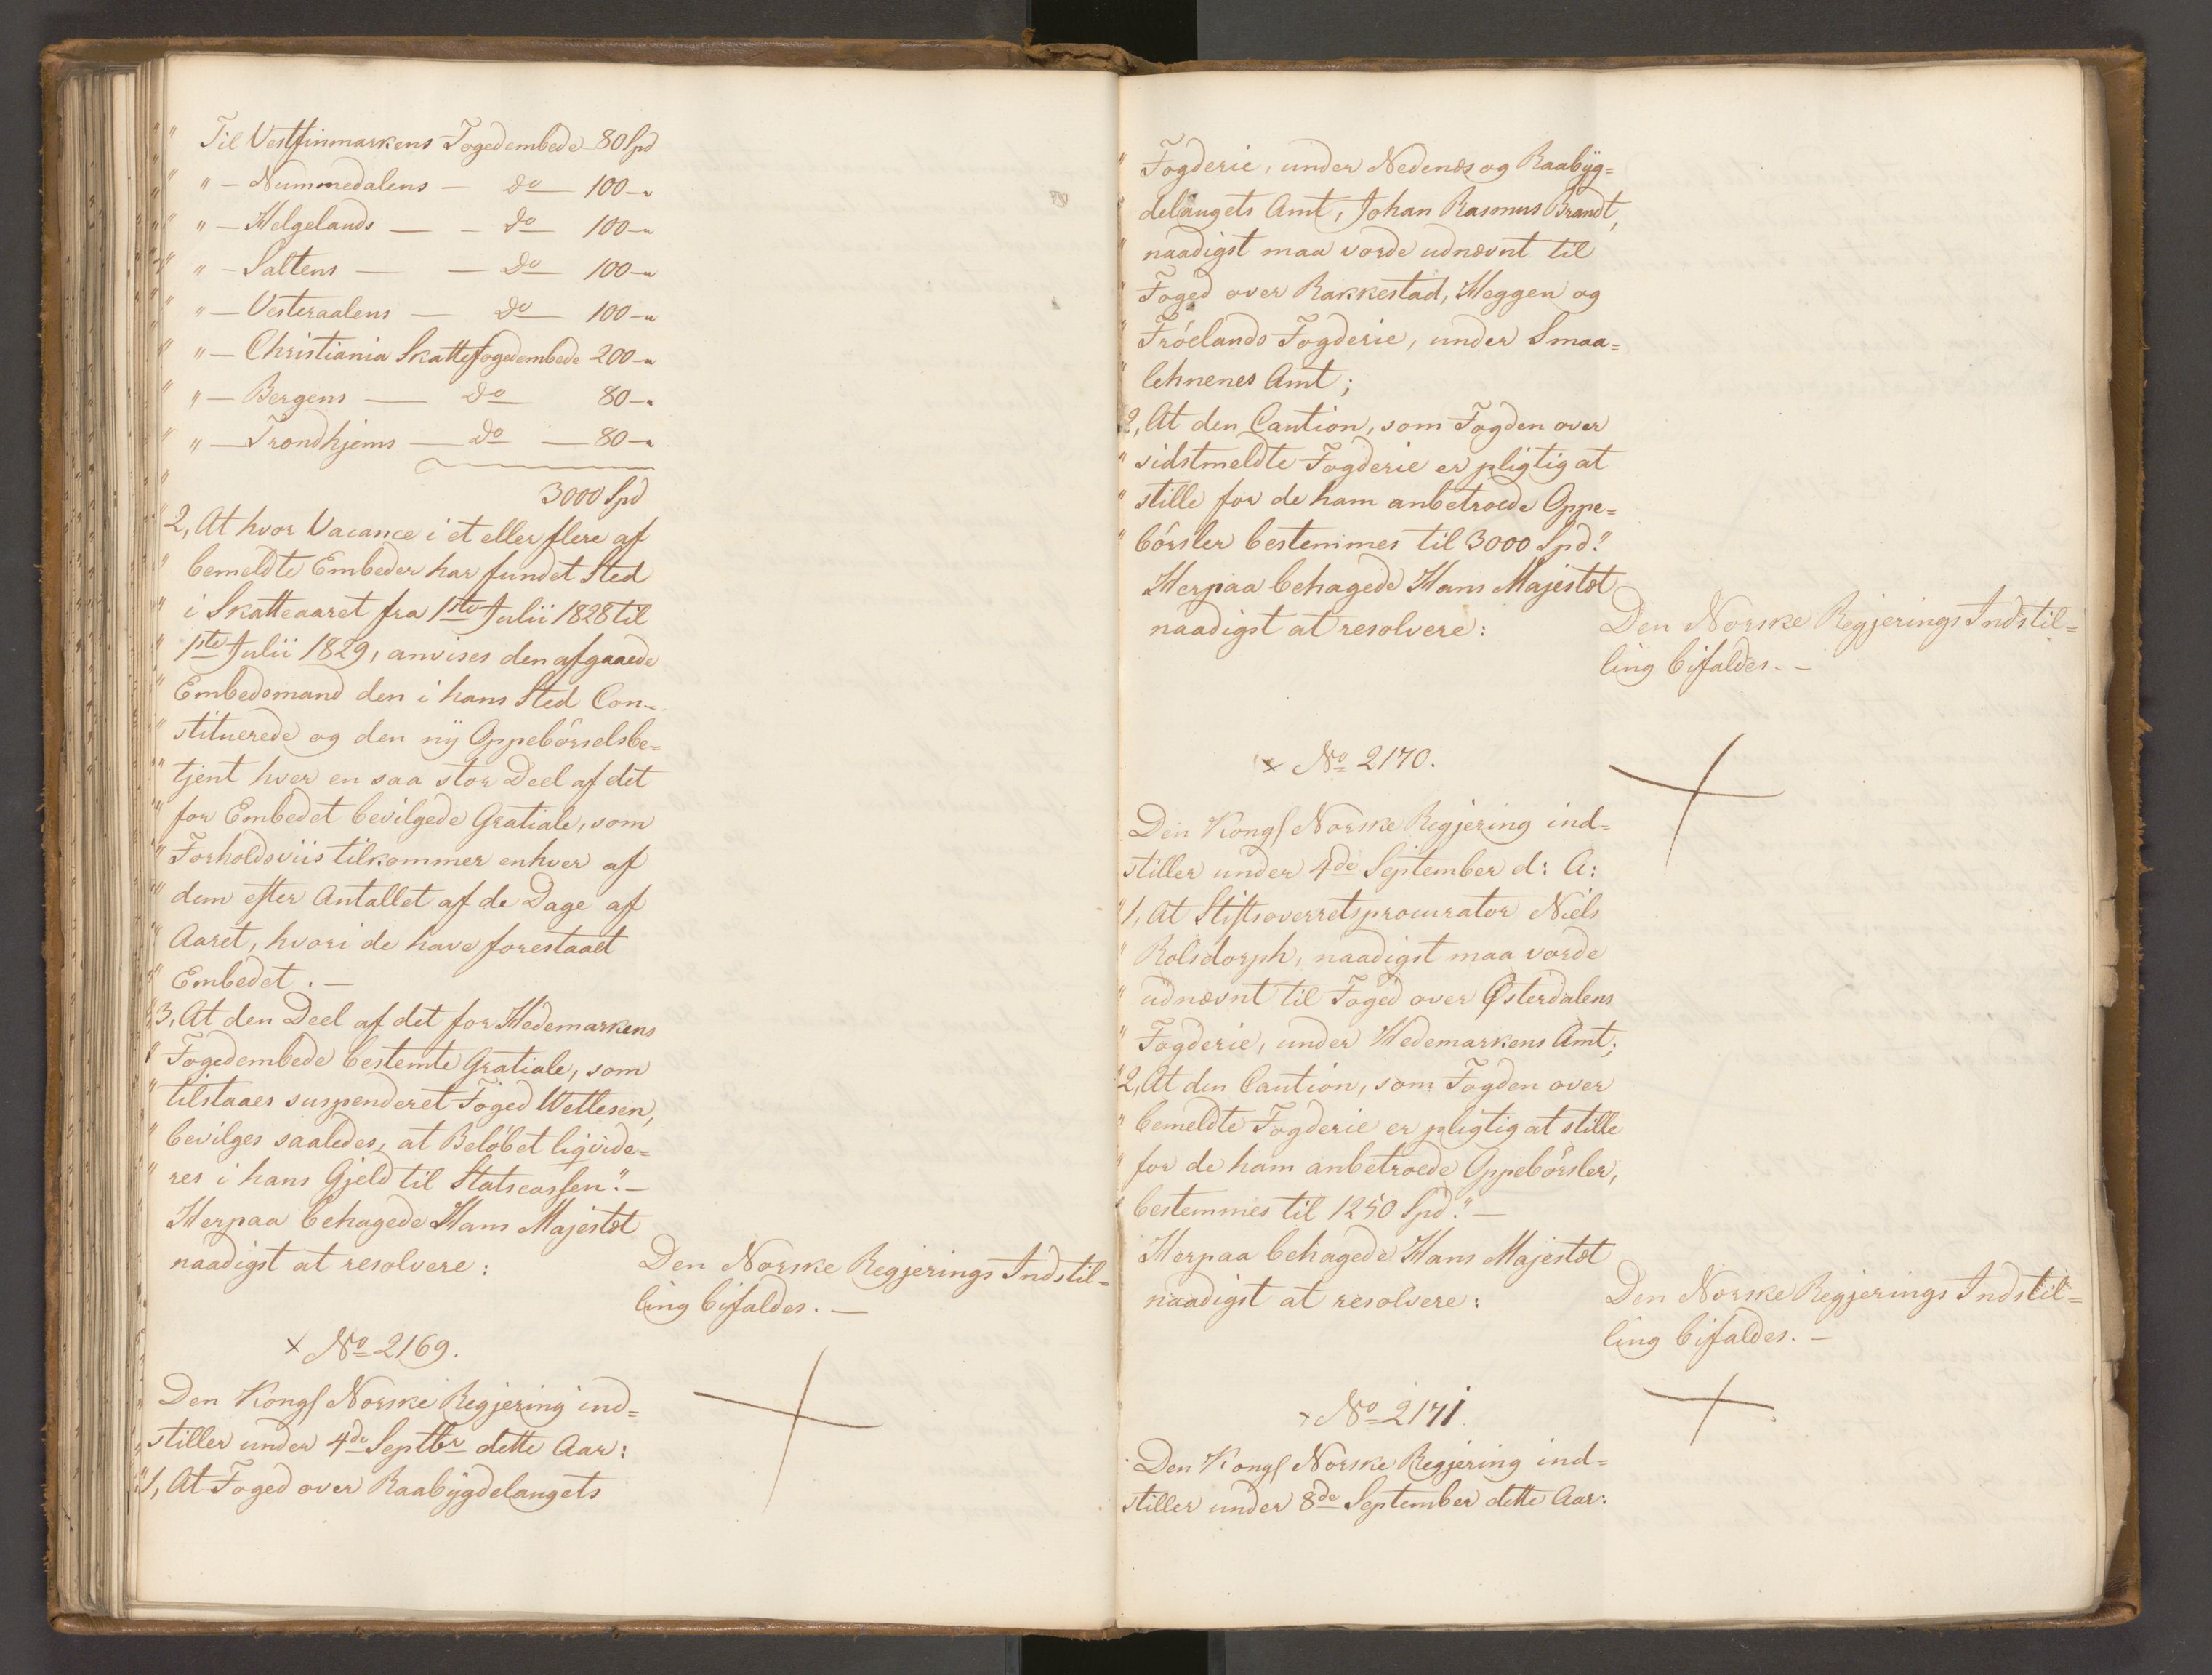 " Til Vestfinmarkens Fogedembede 80 Spd
" " — Nummedalens — do — 100 — "
" " — Helgelands — - do — 100 — "
" " - Saltens — — do — 100 — "
" " — Vesteraalens — do — 100 — "
" " — Christiania Skattefogedembede 200 — "
" " — Bergens — do 80 — "
" " — Trondhjems — do — 80 — "
" 3000 Spd
" 2, At hvor Vacance i et eller flere af
" bemeldte Embeder har fundet Sted
" i Skatteaaret fra 1ste Julii 1828 til
" 1ste Julii 1829, anvises den afgaaede
" Embedsmand den i hans Sted Con-
" stituerede og den nÿ Oppebörselsbe=
" tjent hver en saa stor Deel af det
" for Embedet bevilgede Gratiale, som
" Forholdsviis tilkommer enhver af
" dem efter Antallet af de Dage af
" Aaret, hvori de have forestaaet
" Embedet. —
" 3, At den Deel af det for Hedemarkens
" Fogedembede bestemte Gratiale, som
" tilstaaes suspenderet Foged Wetlesen,
" bevilges saaledes, at Belöbet liqvide=
" res i hans Gjeld til Statscassen". —
Herpaa behagede Hans Majestæt
naadigst at resolvere:
Den Norske Regjerings Indstil-
ling bifaldes. —
× No 2169.
Den Kongl Norske Regjering ind=
stiller under 4de Septbr dette Aar:
" 1, At Foged over Raabÿgdelaugets
" Fogderie, under Nedenæs og Raabÿg=
" delaugets Amt, Johan Rasmus Brandt,
" naadigst maa vorde udnævnt til
" Foged over Rakkestad, Heggen og
" Fröelands Fogderie, under Smaa=
" lehnenes Amt;
" 2, At den Caution, som Fogden over
" sidstmeldte Fogderie er pligtig at
" stille for de ham anbetroede Oppe=
" börsler bestemmes til 3000 Spd."
Herpaa behagede Hans Majestæt
naadigst at resolvere:
Den Norske Regjerings Indstil=
ling bifaldes. —
× No 2170.
Den Kongl Norske Regjering ind=
stiller under 4de September d: A:
" 1, At Stiftsoverretsprocurator Niels
" Rolsdorph, naadigst maa vorde
" udnævnt til Foged over Østerdalens
" Fogderie, under Hedemarkens Amt;
" 2, At den Caution, som Fogden over
" bemeldte Fogderie er pligtig at stille
" for de ham anbetroede Oppebörsler,
" bestemmes til 1250 Spd." —
Herpaa behagede Hans Majestæt
naadigst at resolvere:
Den Norske Regjerings Indstil=
ling bifaldes. —
× No 2171.
Den Kongl Norske Regjering ind=
stiller under 8de September dette Aar: